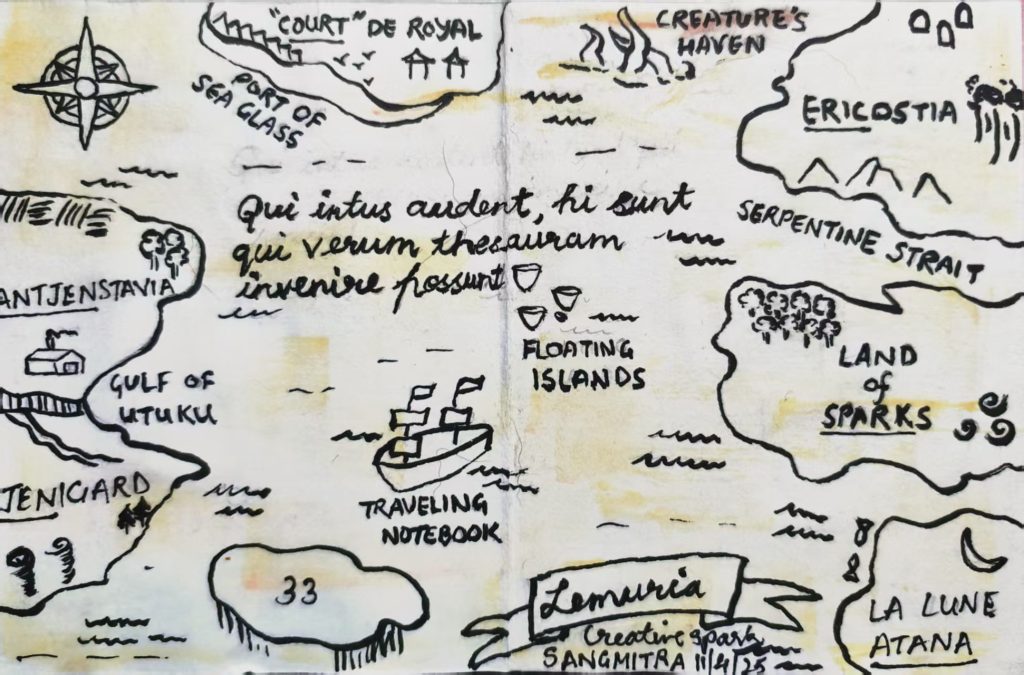 "COURT" DE ROYAL
PORT OF
SEA GLASS
CREATURE'S
HAVEN
ERICOSTIA
SERPENTINE STRAIT
Qui intus audent, hi sunt
qui verum thesauram
invenire possunt
ANTJENSTAVIA
GULF OF
UTUKU
FLOATING
ISLANDS
LAND
of
SPARKS
JENIGARD
TRAVELING
NOTEBOOK
33
Lemuria
Creative spark
SANGMITRA 11/4/25
LA LUNE
ATANA